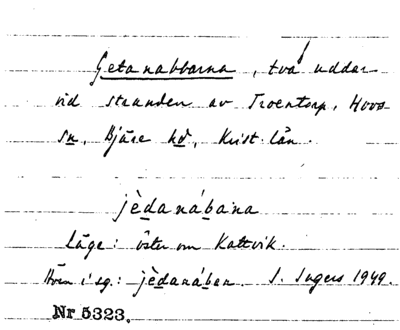 Getanabbarna, två uddar
vid stranden av Troentorp, Hovs
sn, Bjäre hd, Krist. län.
jèdanábana
Läge: öster om Kattvik.
Även i sg.: jèdanában. I. Ingers 1949.
Nr 5323.